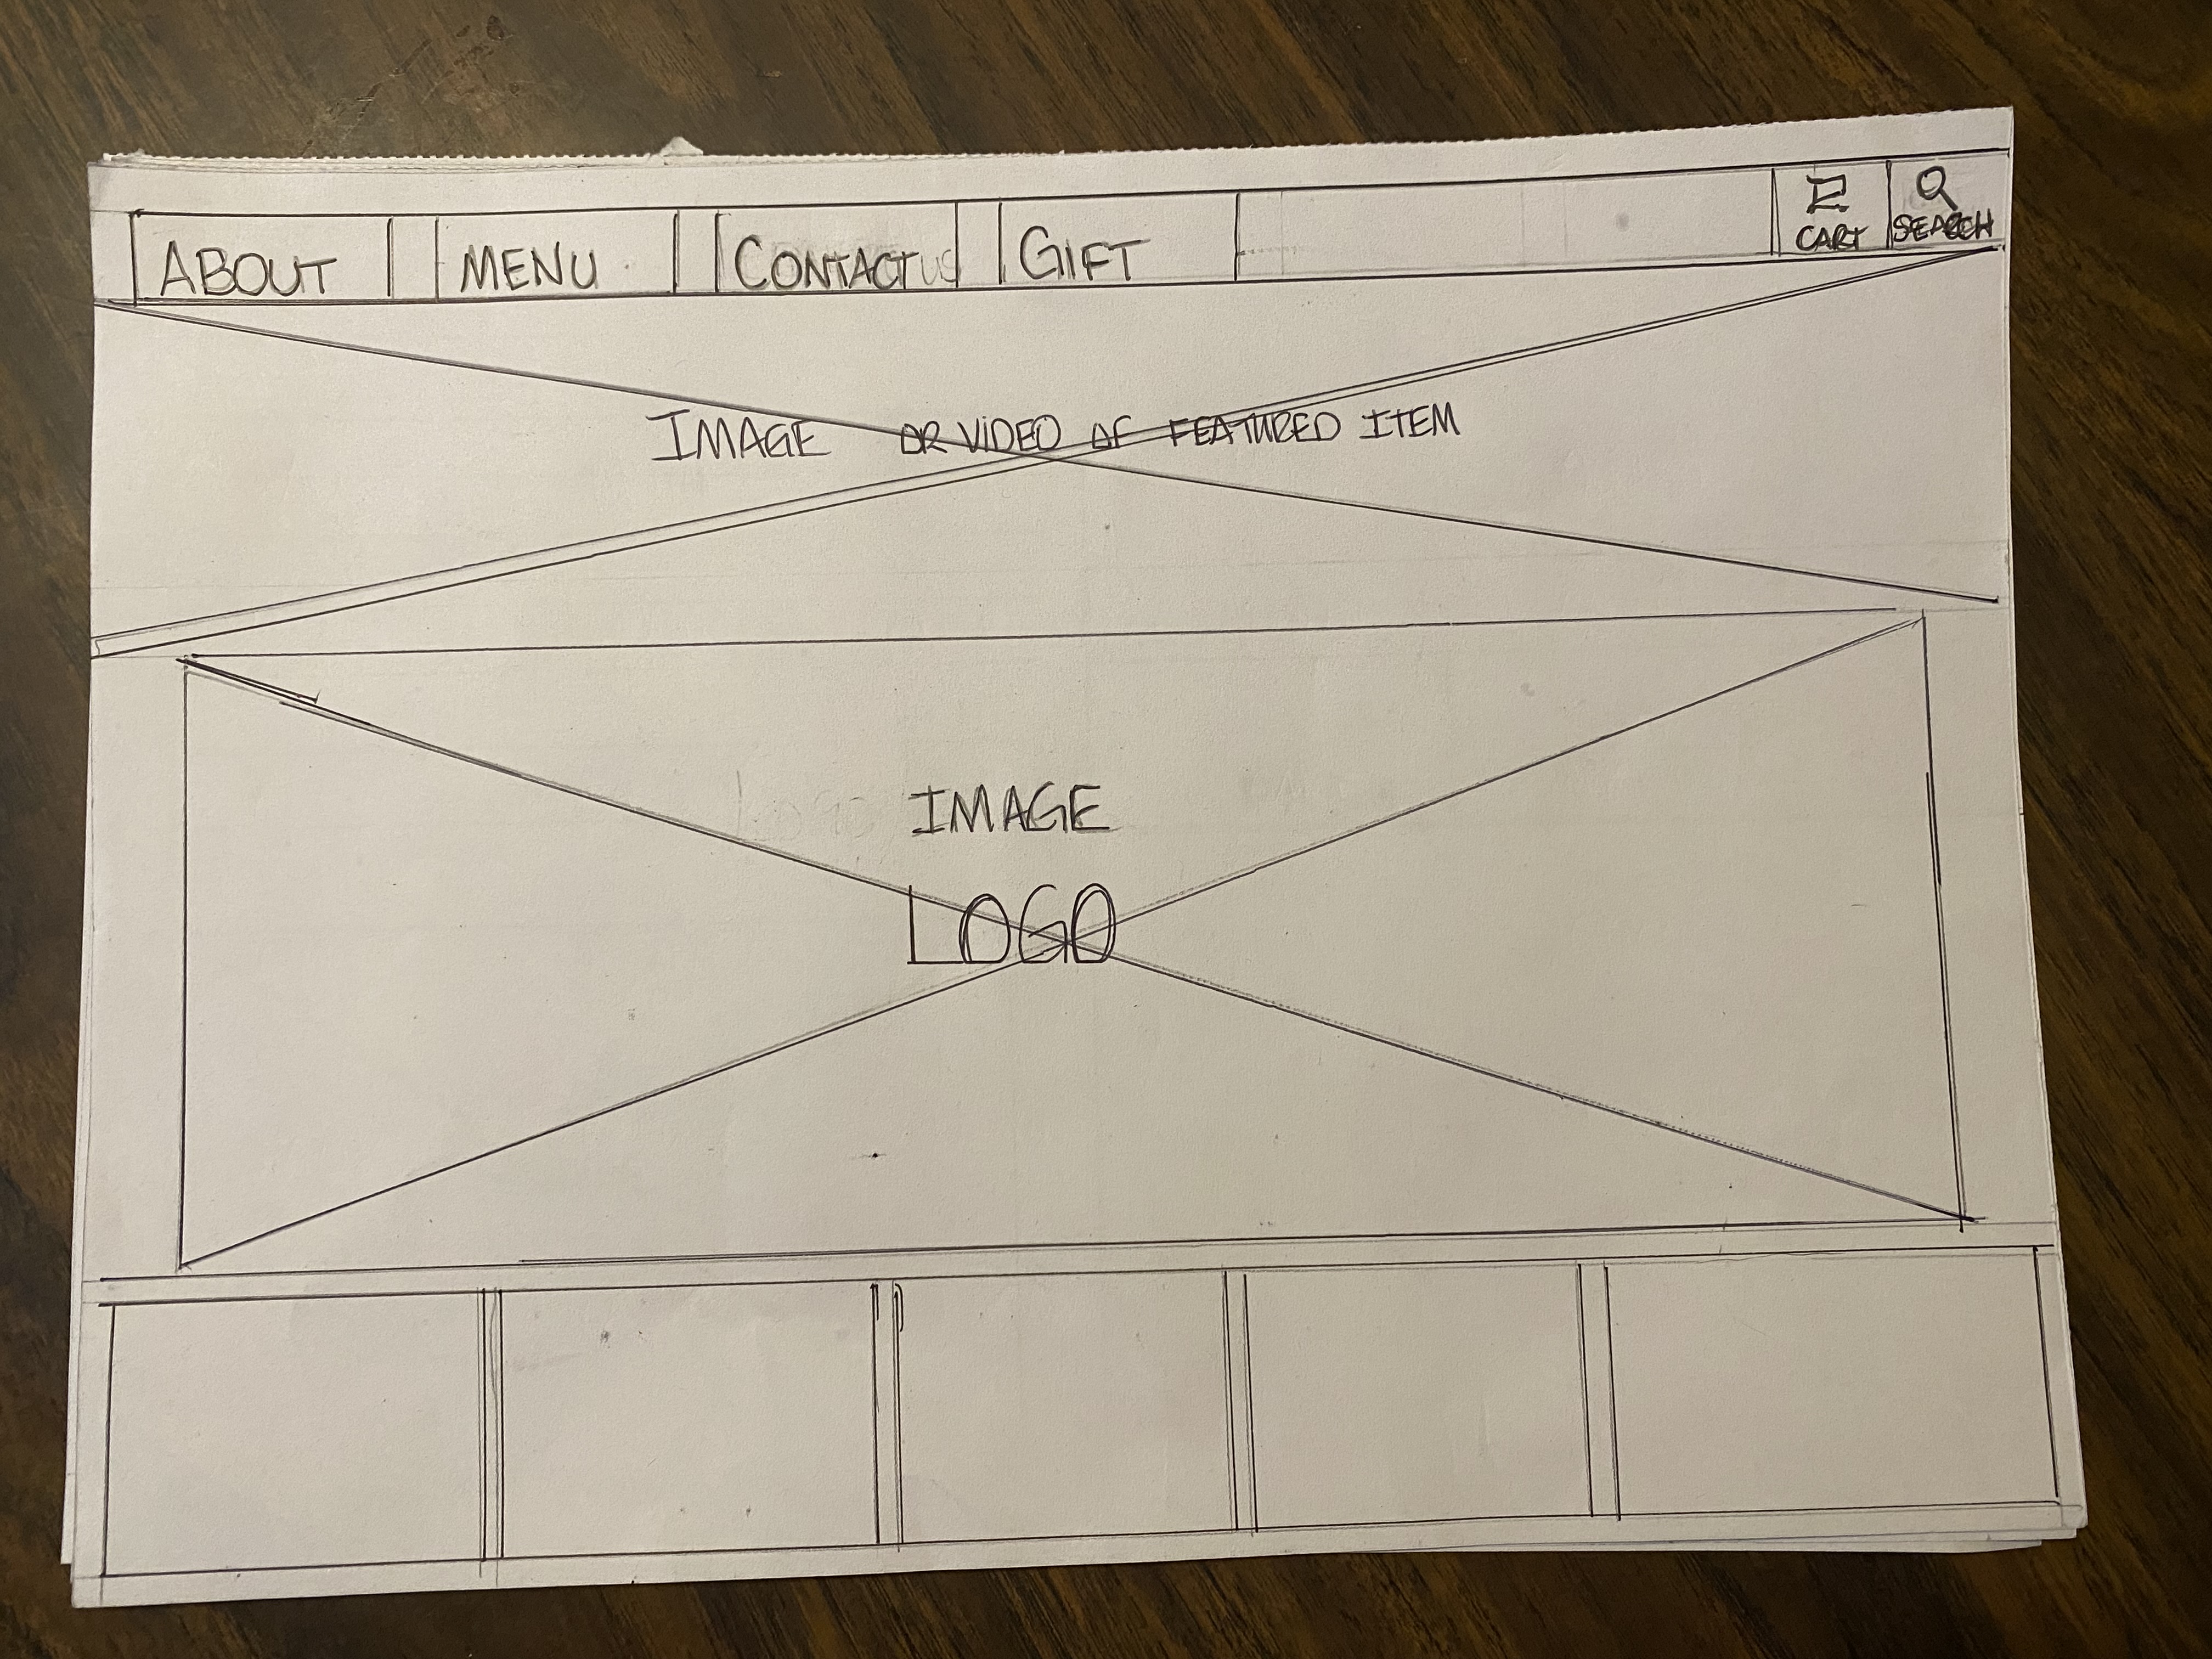 ABOUT
MENU
CONTACT US
GIFT
CART
SEARCH
IMAGE OR VIDEO OF FEATURED ITEM
IMAGE
LOGO